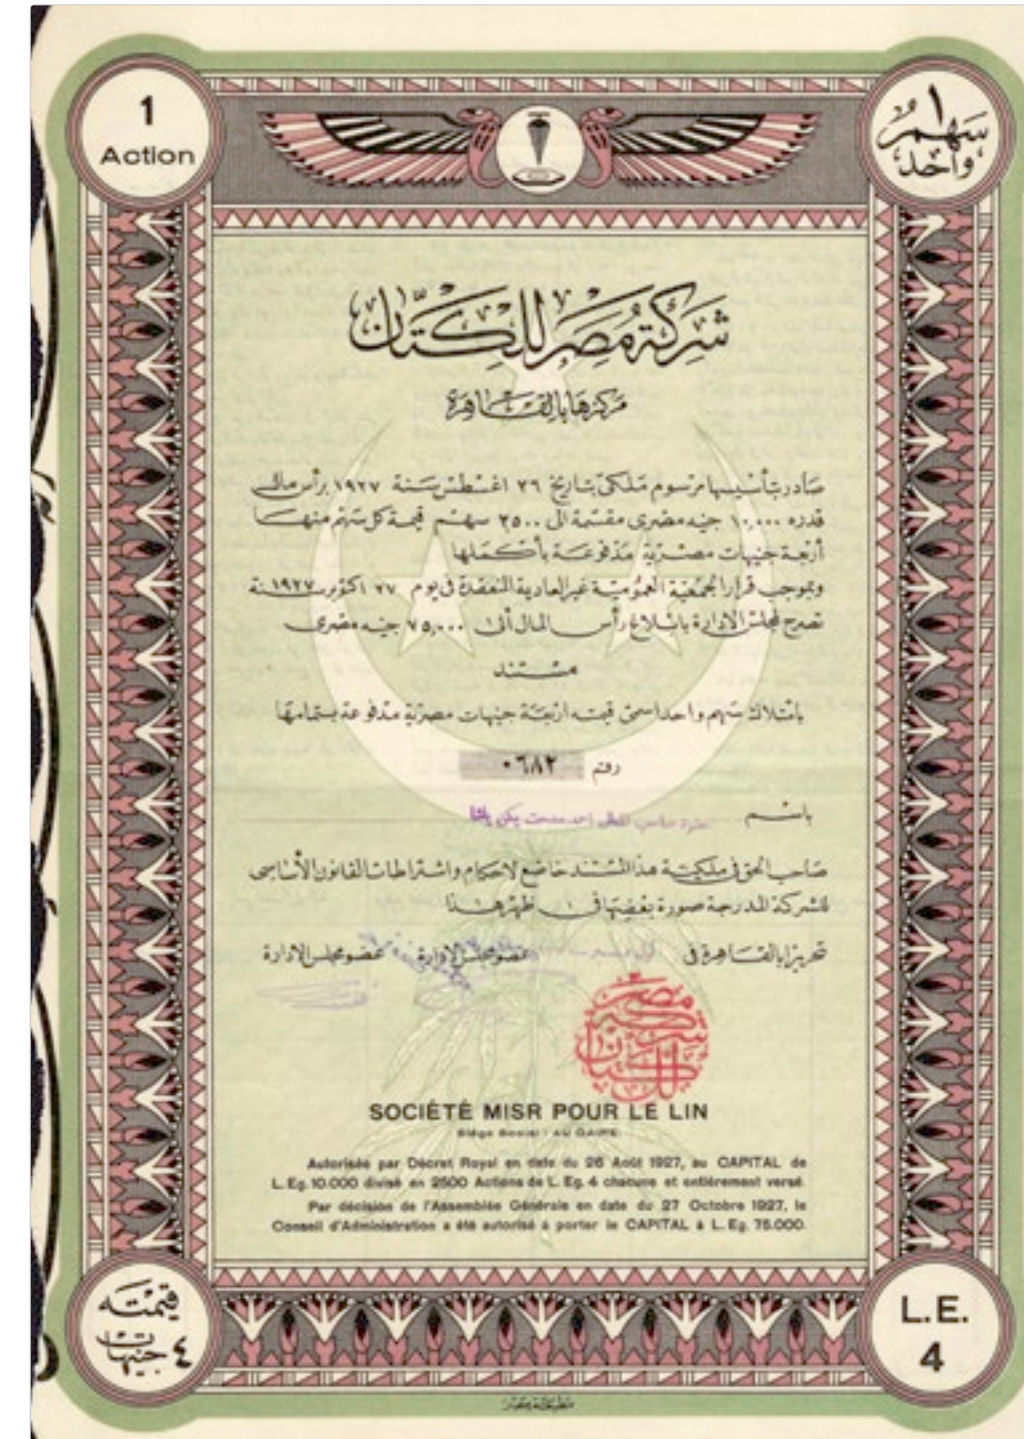 1
Action
١
سهم
واحد
شركة مصر للكتان
مركزها بالقاهرة
صادر بتأسيسها مرسوم ملكى بتاريخ ٢٦ اغسطس سنة ١٩٢٧ برأس مال
قدره ١٠,٠٠٠ جنيه مصرى مقسمة الى ٢٥٠٠ سهم قيمة كل سهم منها
أربعة جنيهات مصرية مدفوعة بأكملها
وبموجب قرار الجمعية العمومية غير العادية المنعقدة فى يوم ٢٧ اكتوبر سنة ١٩٢٧
تصرح لمجلس الادارة بابلاغ رأس المال الى ٧٥,٠٠٠ جنيه مصرى
مستند
بامتلاك سهم واحد اسمى قيمته اربعة جنيهات مصرية مدفوعة بتمامها
رقم ٠٦٨٢
باسم حضرة صاحب احمد مدحت يكن باشا
صاحب الحق فى ملكية هذا المستند خاضع لاحكام واشتراطات القانون الأساسى
للشركة المدرجة صورة بعضها فى ظهر هذا
تحريرا بالقاهرة فى عضو مجلس الادارة عضو مجلس الادارة
شركة مصر للكتان
SOCIÉTÉ MISR POUR LE LIN
Siége Social : AU CAIRE.
Autorisée par Décret Royal en date du 26 Août 1927, au CAPITAL de
L. Eg. 10.000 divisé en 2500 Actions de L. Eg. 4 chacune et entièrement versé.
Par décision de l'Assemblée Générale en date du 27 Octobre 1927, le
Conseil d'Administration a été autorisé à porter le CAPITAL à L. Eg. 75.000.
قيمته
٤ جنيهات
L.E.
4
مطبعة مصر